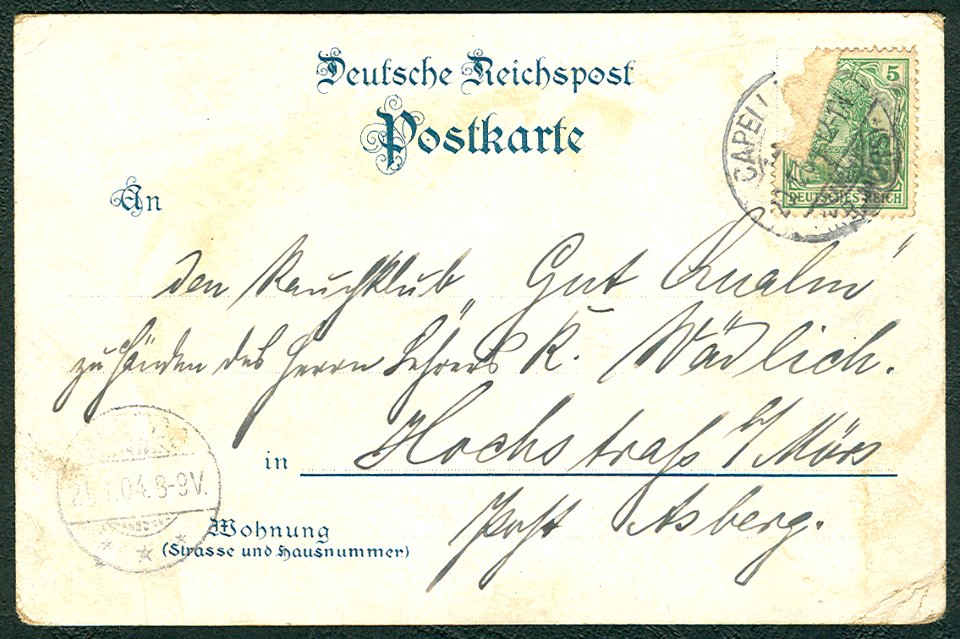 Deutsche Reichspost
Postkarte
5
CAPELL
DEUTSCHES REICH
An
den Rauchklub „Gut Qualm"
zu Händen des Herrn Lehrers K. Wädlich.
in Hochstraß b/ Mörs
Post Asberg.
04.8-9V.
Wohnung
(Strasse und Hausnummer)